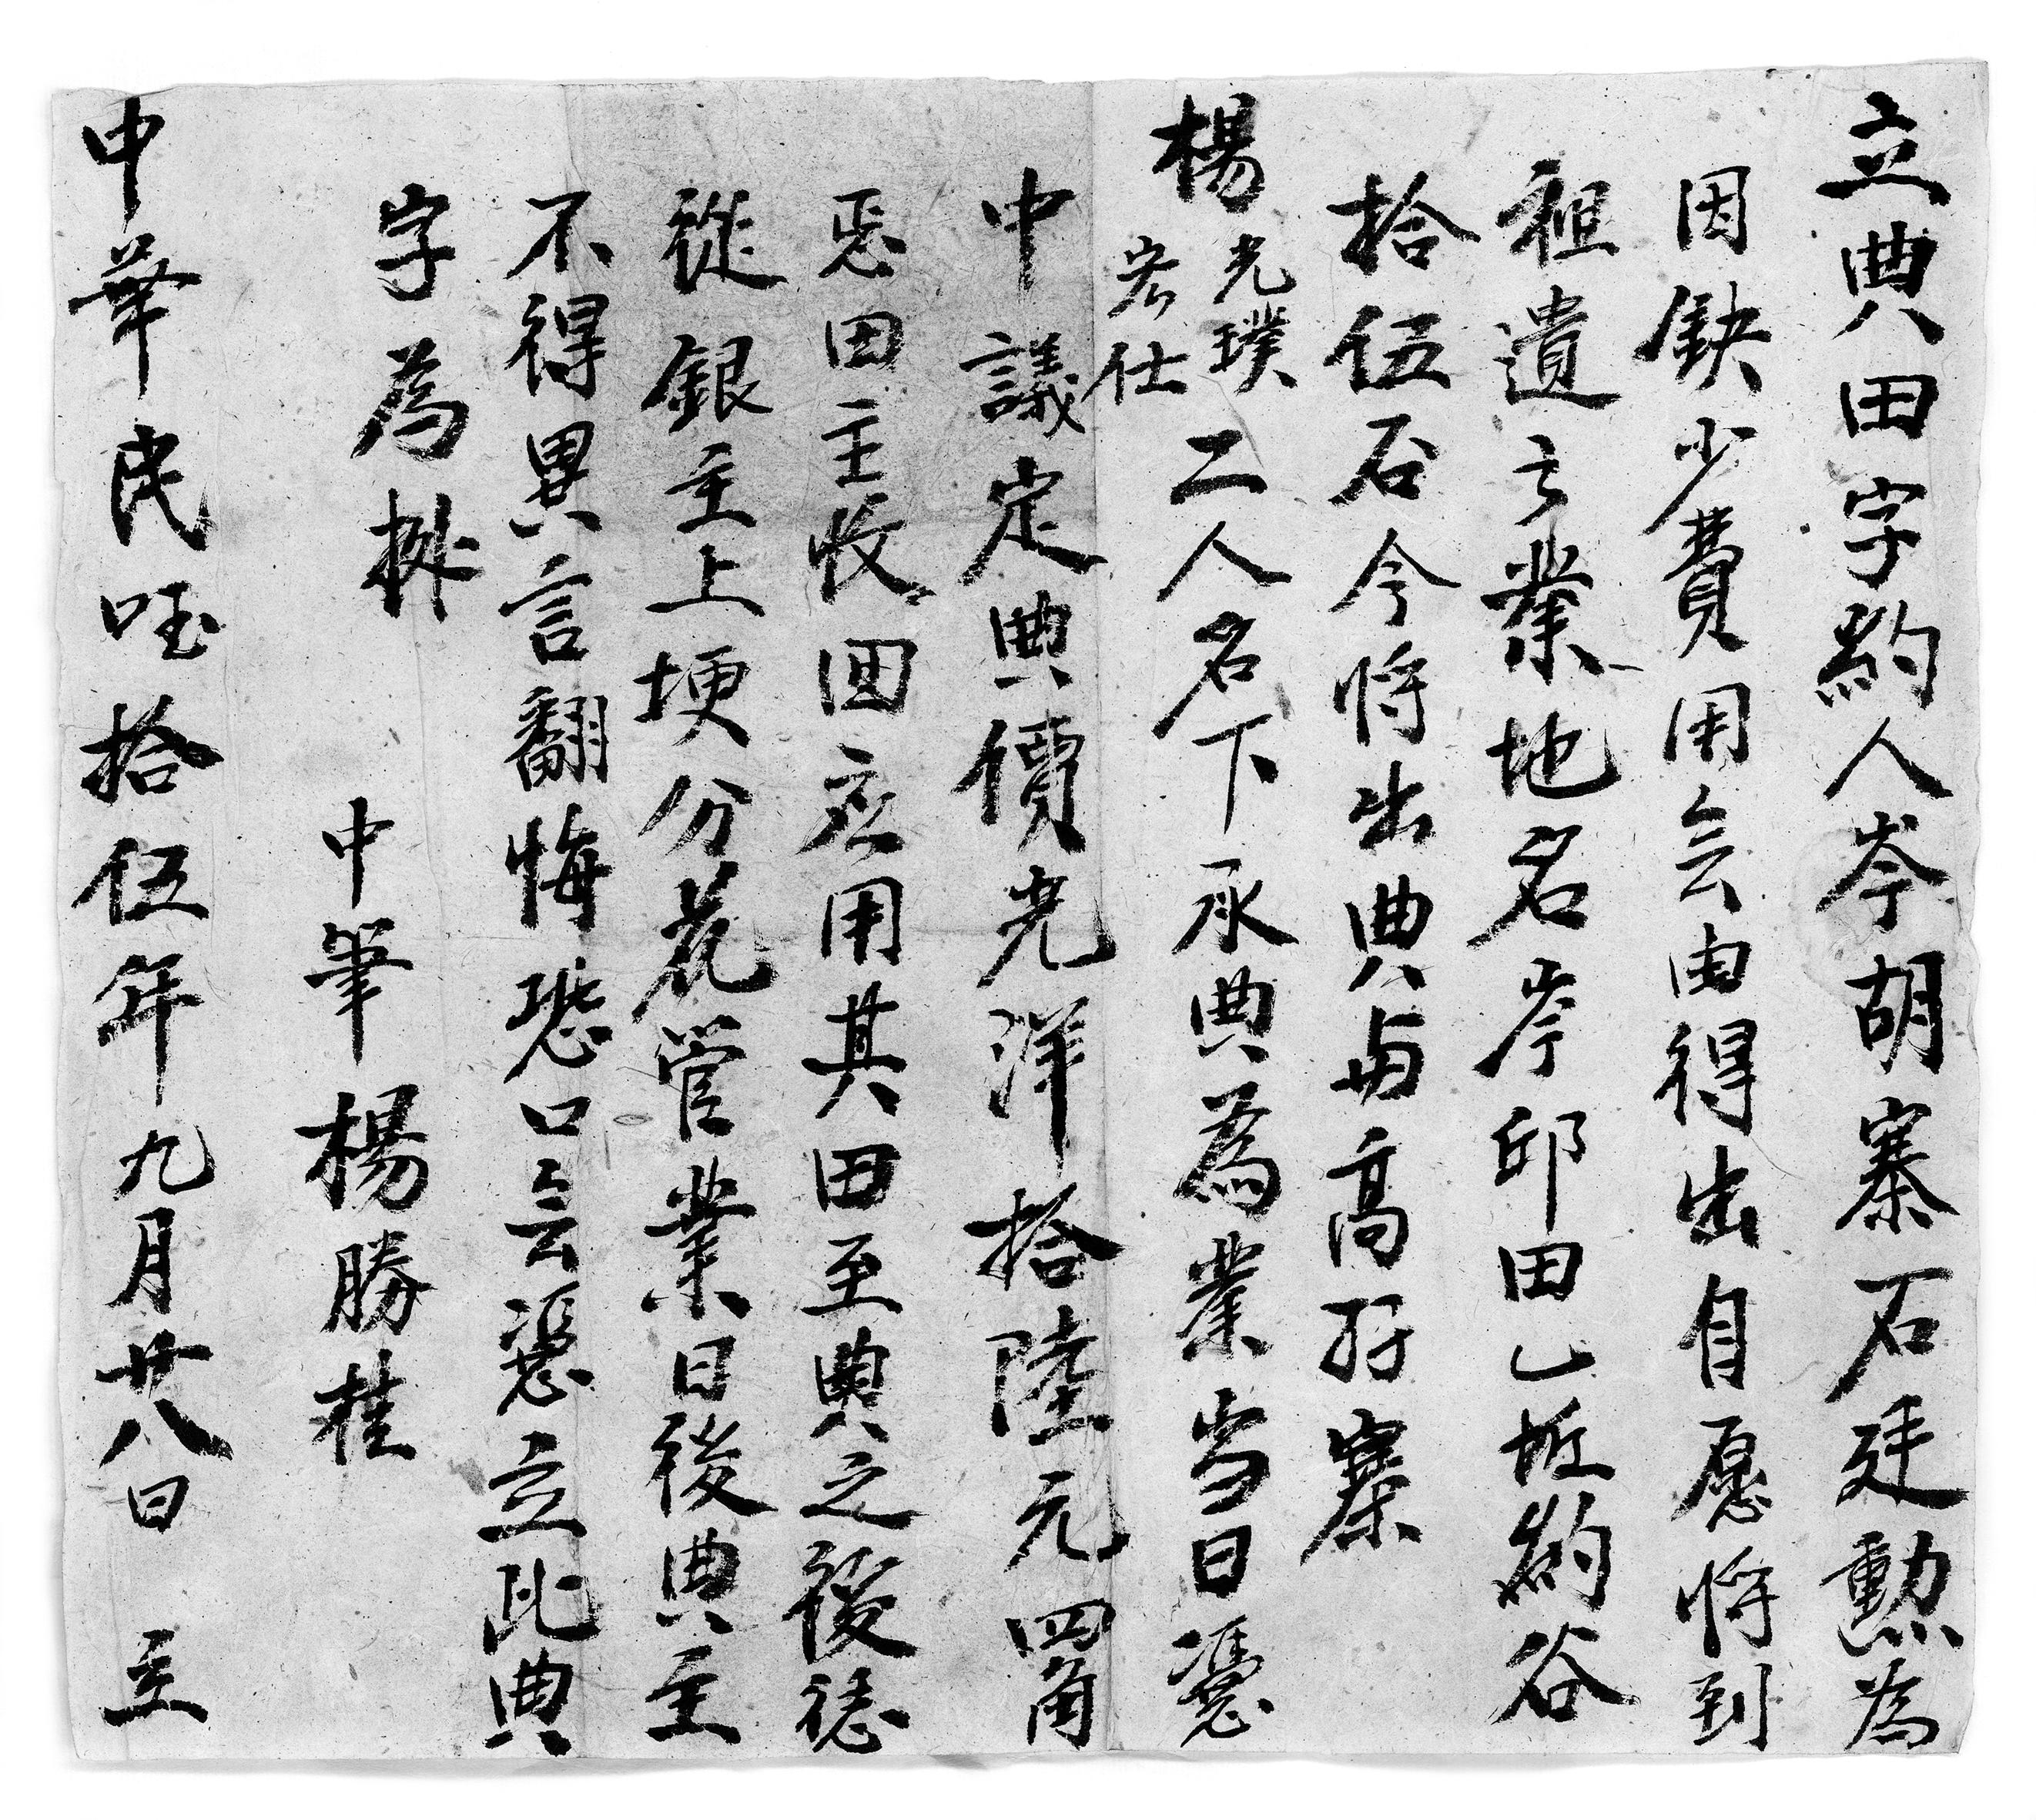 立典田字約人岑胡寨石廷勲為
因缺少費用会由得出自愿将到
祖遺之業地名岑邱田乙坵約谷
拾伍石今将出典与高孖寨
楊光璞
彦仕
二人名下承典為業当日憑
中議定典價光洋拾陸元四角
其田主收囬应用其田至典之後
從銀主上埂分花管業日後典主
不得異言翻悔恐口会憑立此典
字為拠
中筆楊勝桂
中華民囯拾伍年九月廿八日 立